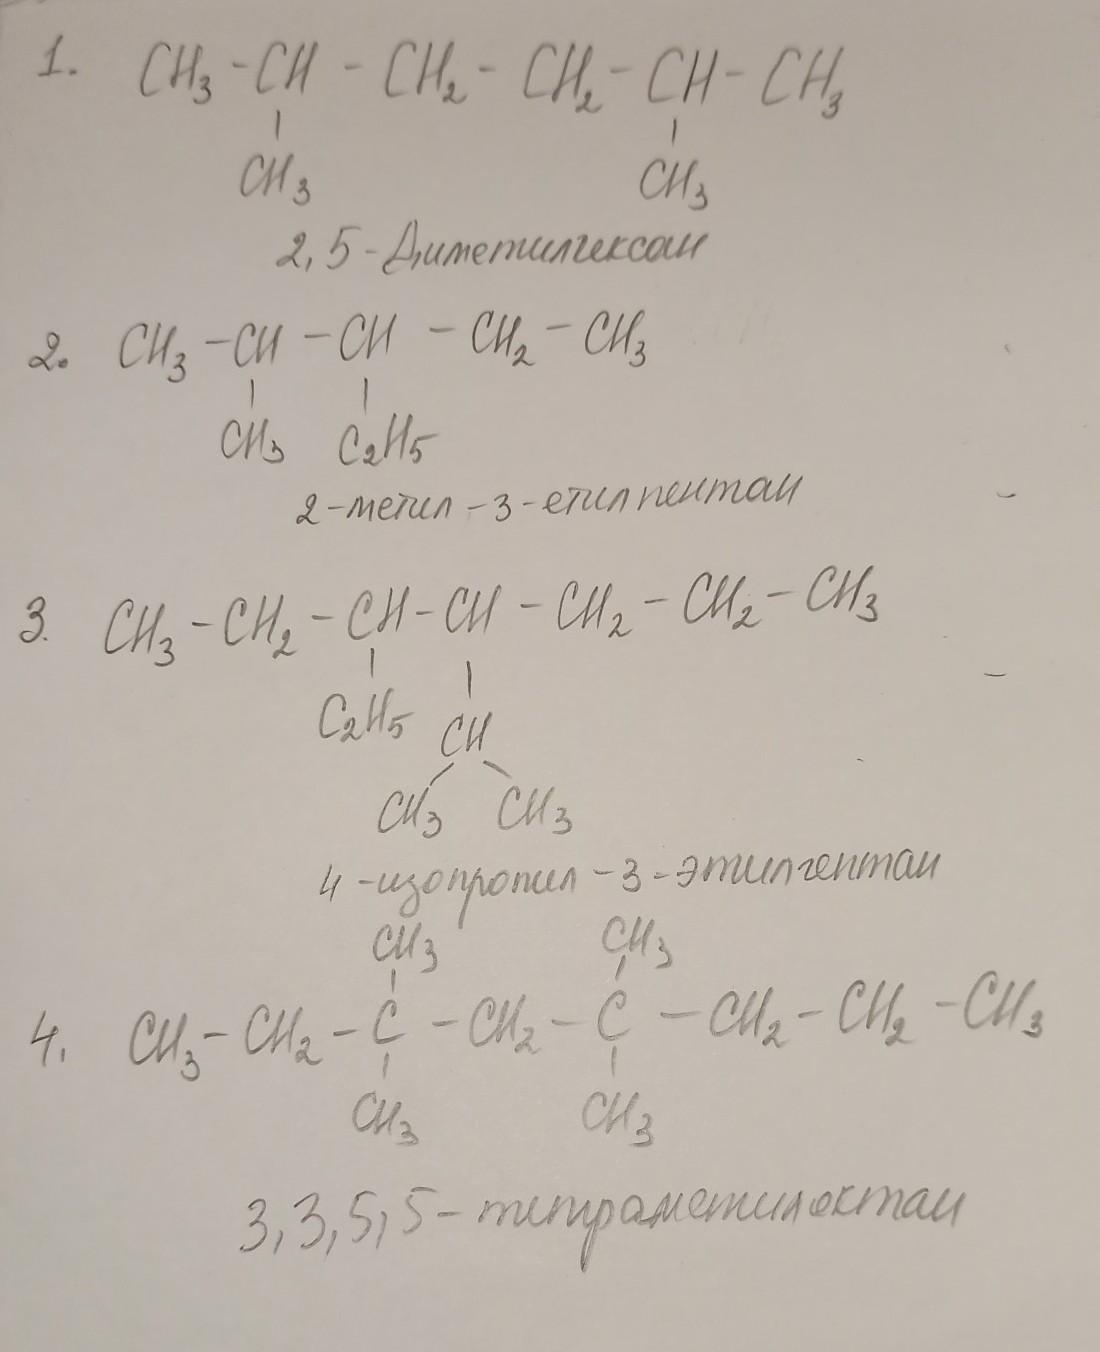 1. CH3 - CH - CH2 - CH2 - CH - CH3
CH3 CH3
2,5-Диметилгексан
2. CH3 - CH - CH - CH2 - CH3
CH3 C2H5
2-метил-3-етилпентан
3. CH3 - CH2 - CH - CH - CH2 - CH2 - CH3
C2H5 CH
CH3 CH3
4-изопропил-3-этилгептан
CH3 CH3
4. CH3 - CH2 - C - CH2 - C - CH2 - CH2 - CH3
CH3 CH3
3,3,5,5-тетраметилоктан